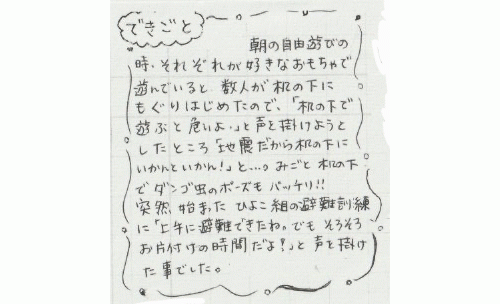 できごと
朝の自由遊びの
時、それぞれが好きなおもちゃで
遊んでいると、数人が机の下に
もぐりはじめたので、「机の下で
遊ぶと危いよ。」と声を掛けようと
したところ「地震だから机の下に
いかんといかん!」と…。みごと机の下
でダンゴ虫のポーズもバッチリ!!
突然始まったひよこ組の避難訓練
に「上手に避難できたね。でもそろそろ
お片付けの時間だよ!」と声を掛け
た事でした。